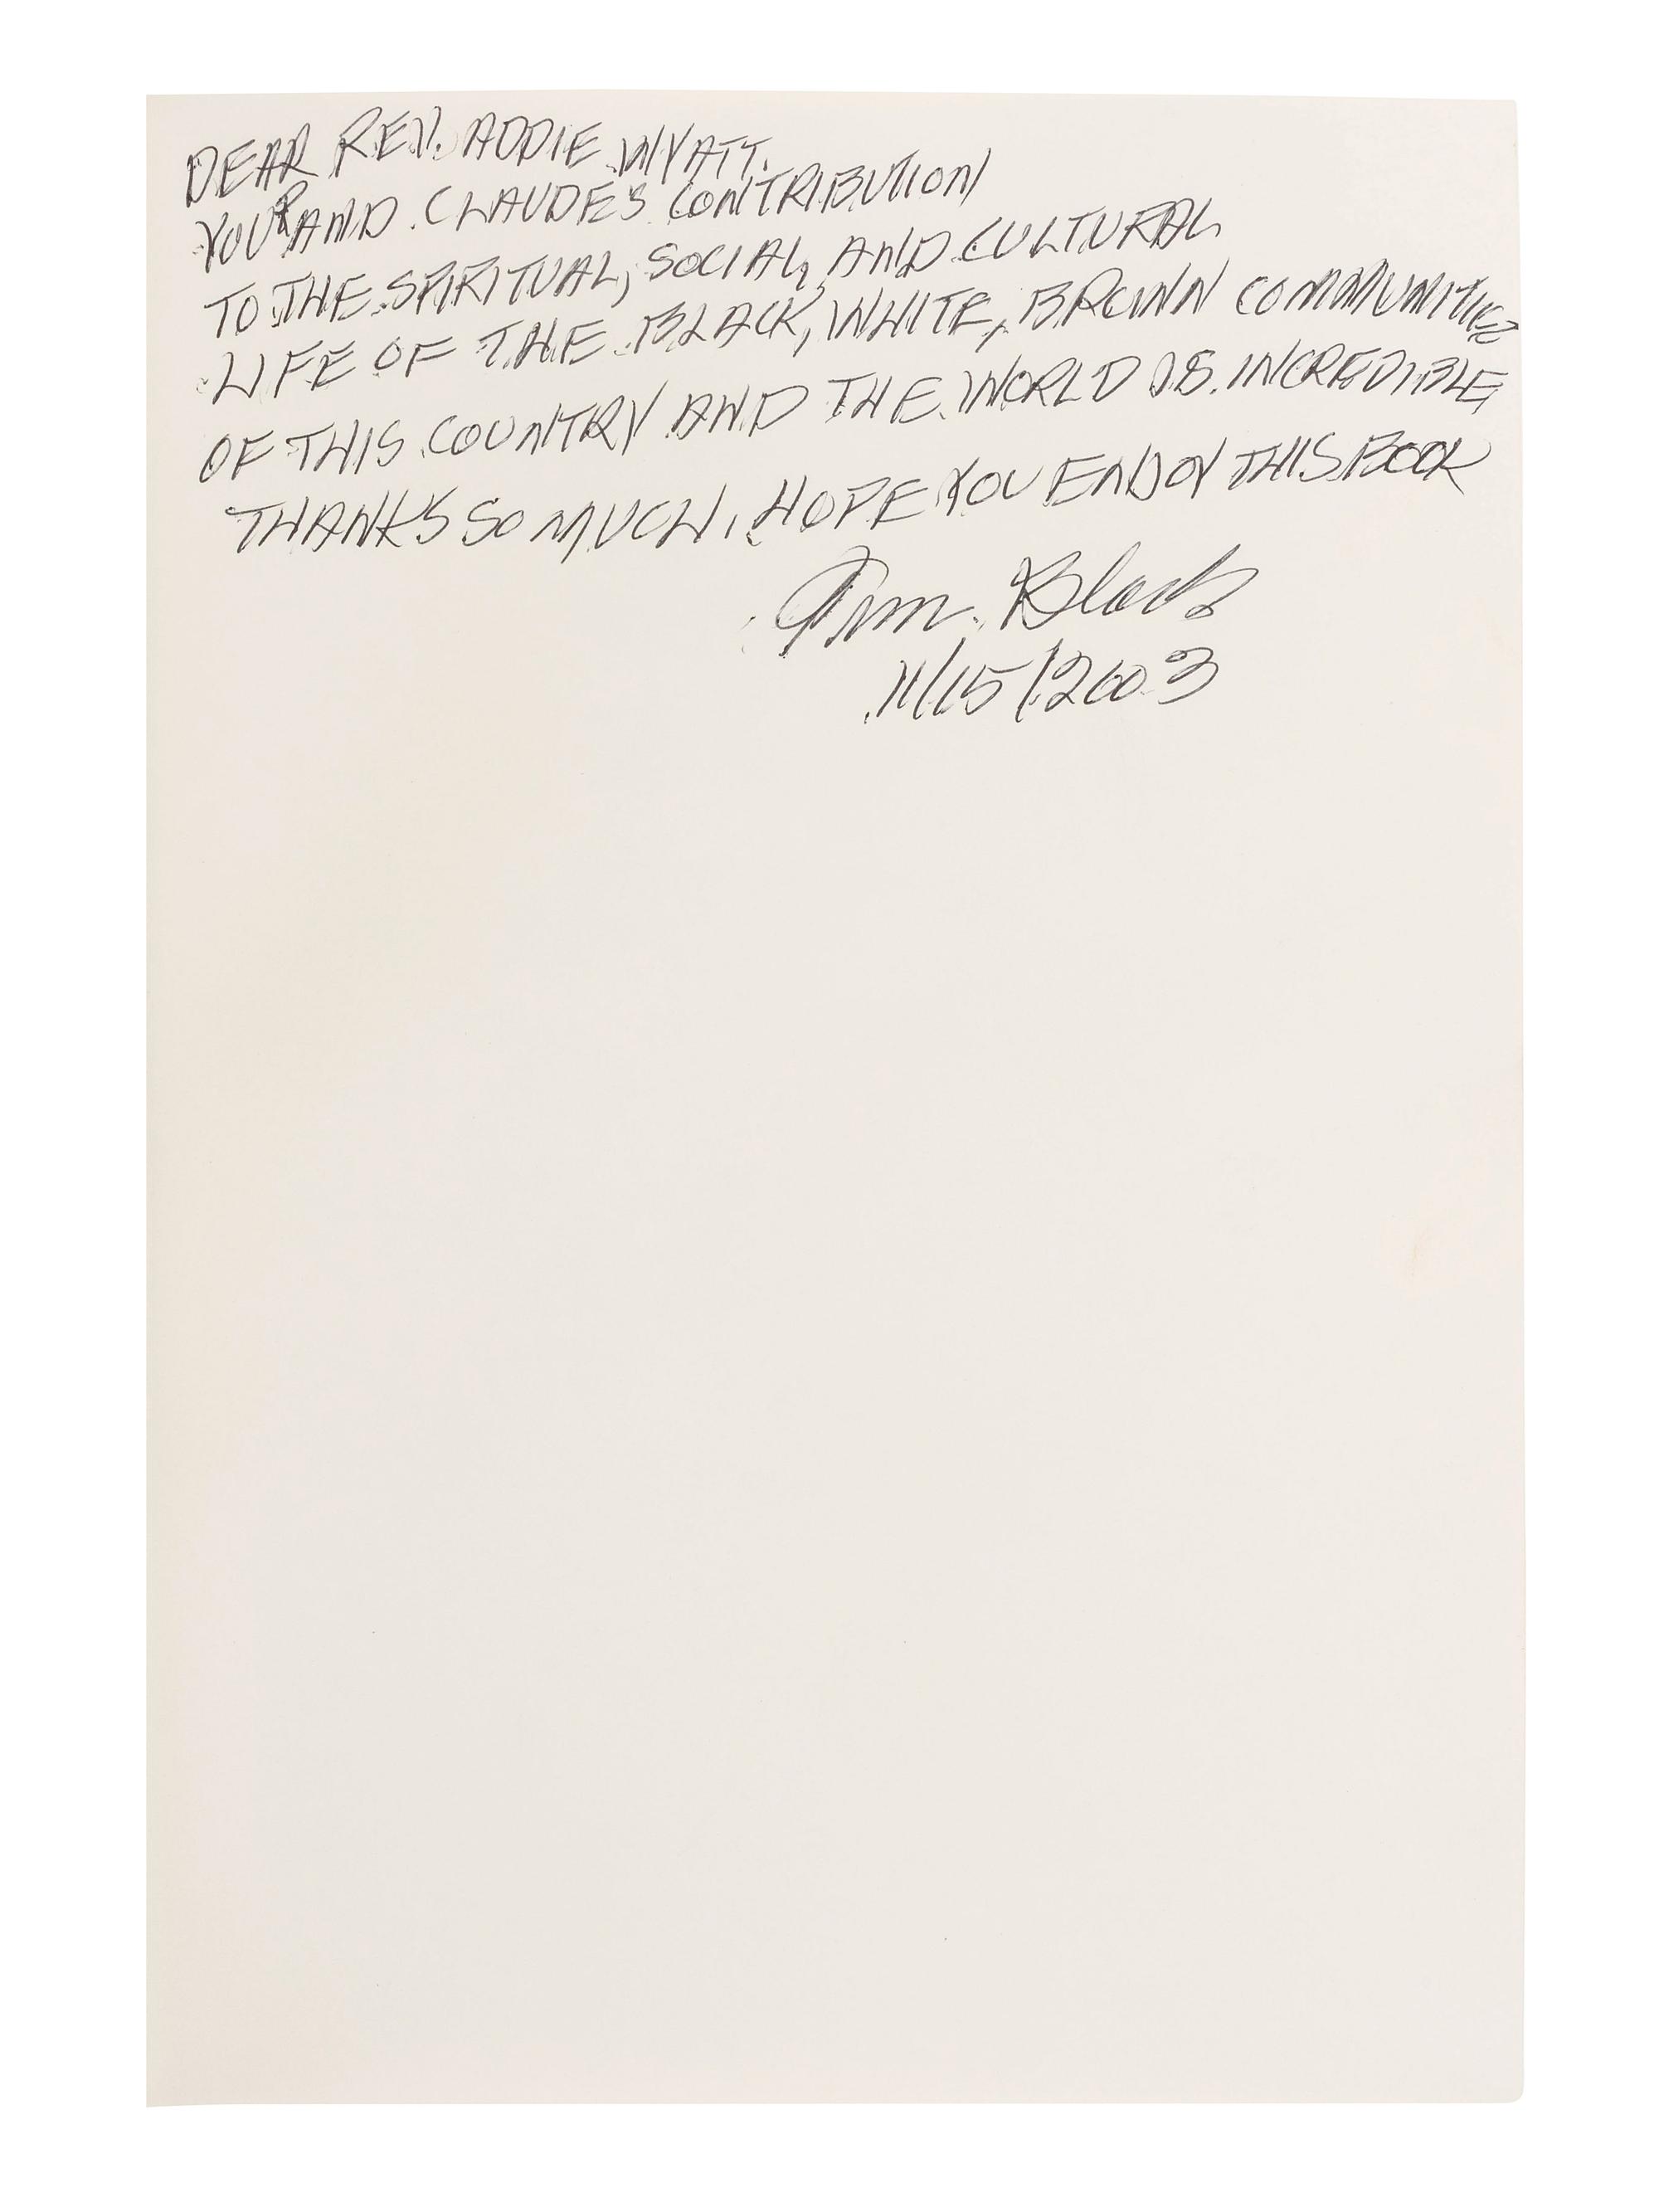 DEAR REV. ADDIE WYATT.
YOUR AND CLAUDE'S CONTRIBUTION
TO THE SPIRITUAL, SOCIAL, AND CULTURAL
LIFE OF THE BLACK, WHITE, BROWN COMMUNITIES
OF THIS COUNTRY AND THE WORLD IS INCREDIBLE,
THANKS SO MUCH. HOPE YOU ENJOY THIS BOOK
Tim Black
11/15/2003